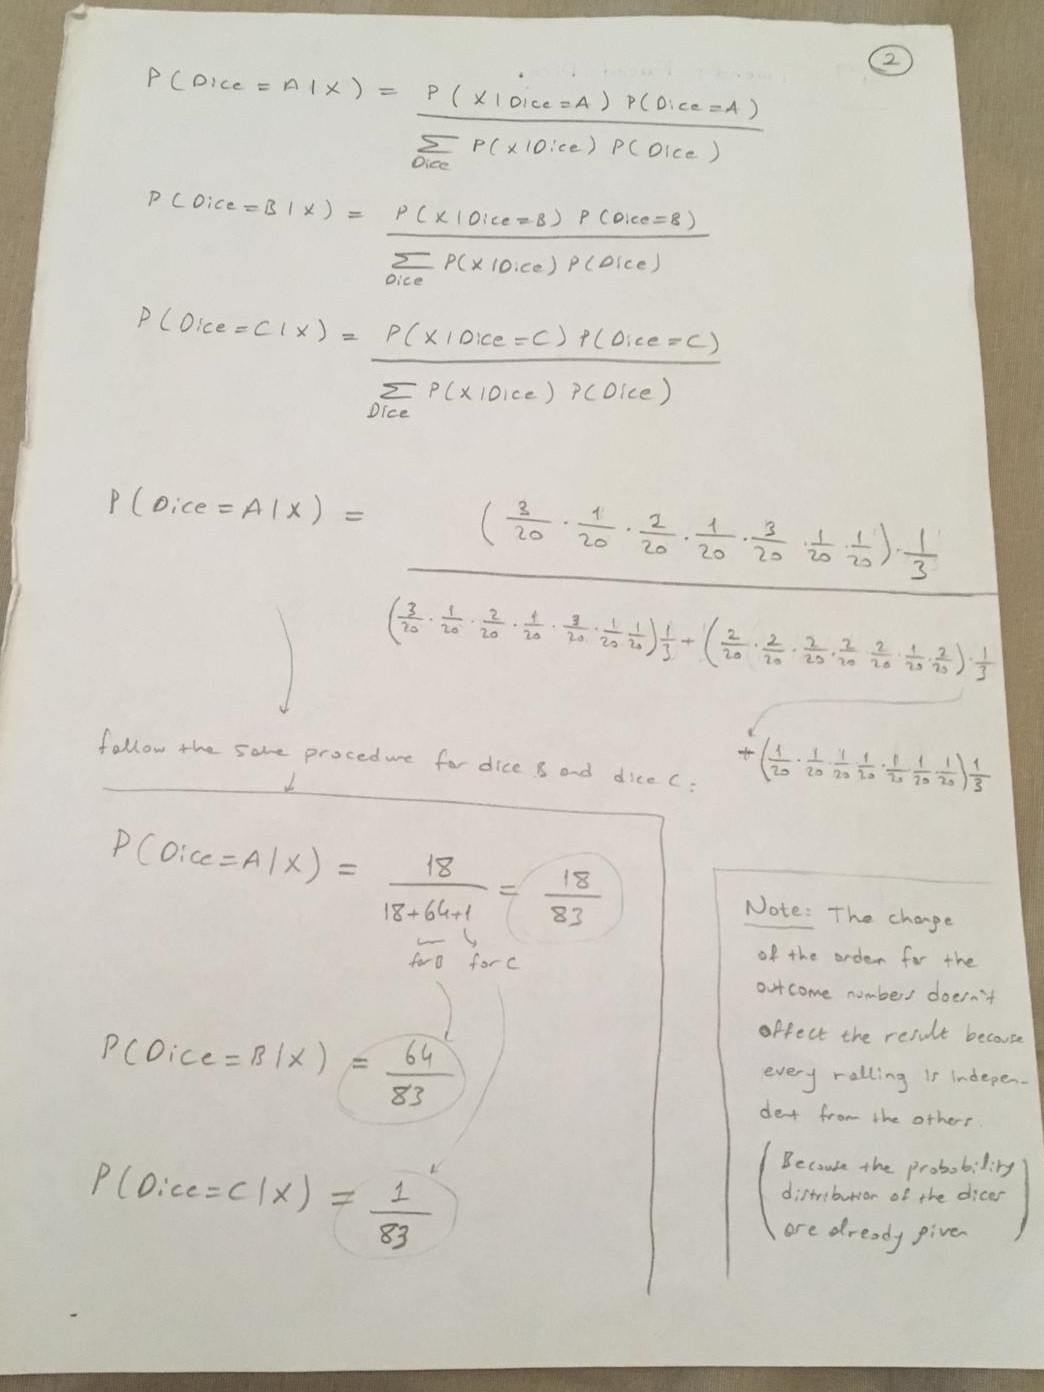 2
P(Dice = A | X) = P(X | Dice = A) P(Dice = A)
Σ P(X | Dice) P(Dice)
Dice
P(Dice = B | X) = P(X | Dice = B) P(Dice = B)
Σ P(X | Dice) P(Dice)
Dice
P(Dice = C | X) = P(X | Dice = C) P(Dice = C)
Σ P(X | Dice) P(Dice)
Dice
P(Dice = A | X) = (3/20 · 1/20 · 2/20 · 1/20 · 3/20 · 1/20 · 1/20) · 1/3
(3/20 · 1/20 · 2/20 · 1/20 · 3/20 · 1/20 · 1/20) 1/3 + (2/20 · 2/20 · 2/20 · 2/20 · 2/20 · 1/20 · 2/20) · 1/3
+ (1/20 · 1/20 · 1/20 · 1/20 · 1/20 · 1/20 · 1/20) 1/3
follow the same procedure for dice B and dice C:
P(Dice = A | X) = 18 / 18+64+1 = 18/83
for B for C
P(Dice = B | X) = 64/83
P(Dice = C | X) = 1/83
Note: The change
of the order for the
outcome numbers doesn't
affect the result because
every rolling is indepen-
dent from the others.
(Because the probability
distribution of the dices
are already given)